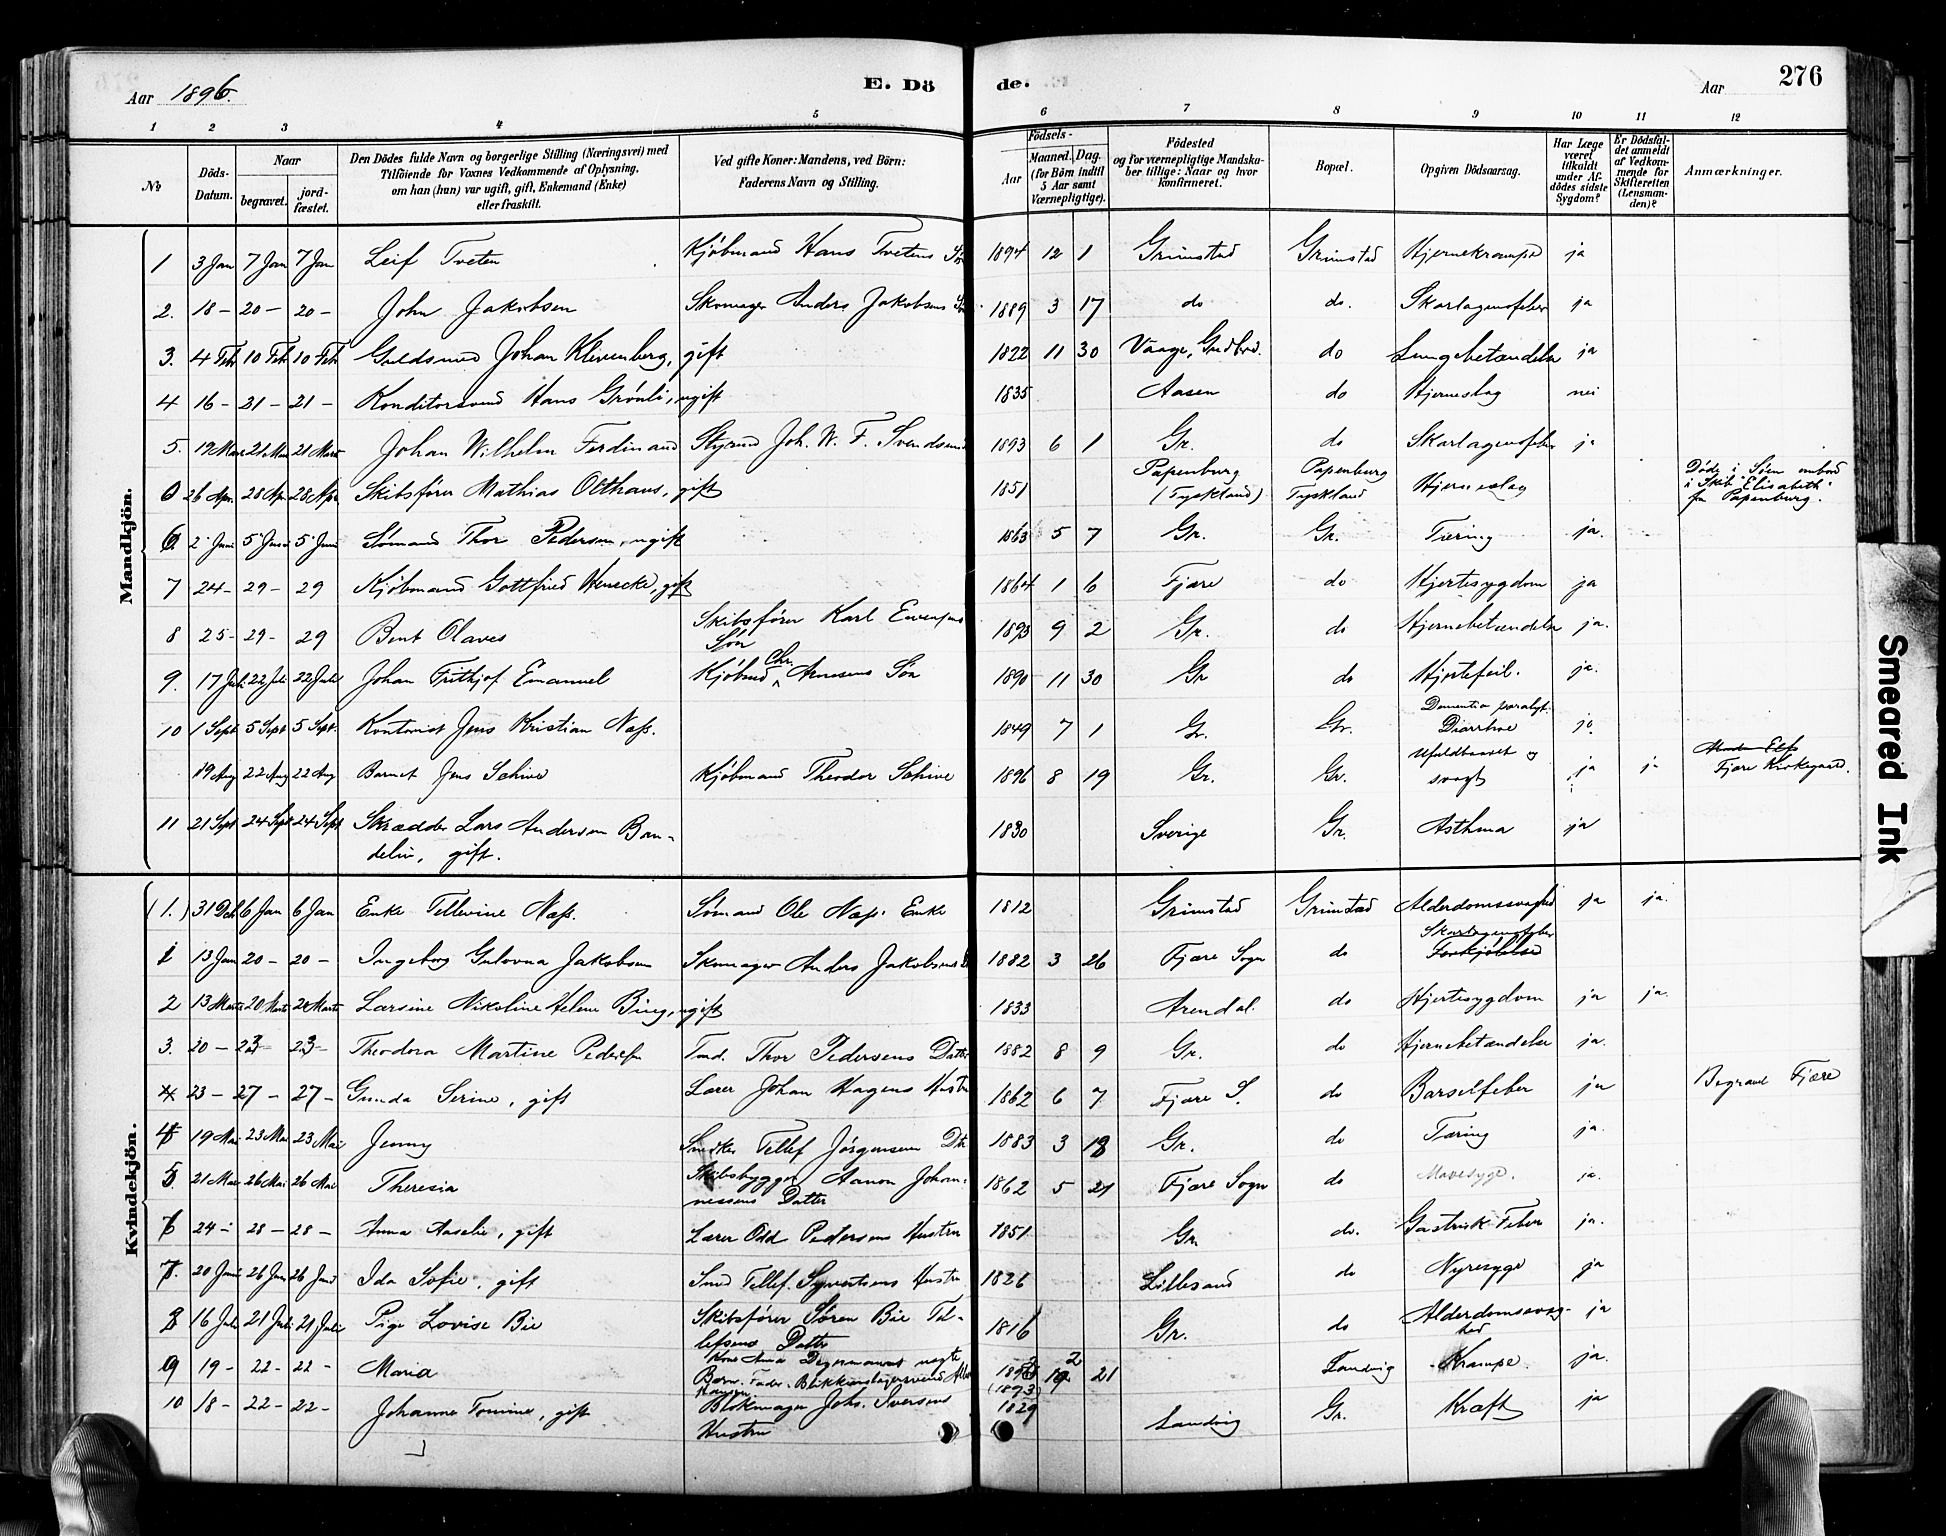 Aar 1896. E. Dö de. Aar 276
1 2 3 4 5 6 7 8 9 10 11 12
No
Döds-Datum.
Naar
begravet. jord-fæstet.
Den Dödes fulde Navn og borgerlige Stilling (Næringsvei) med
Tilföiende for Voxnes Vedkommende af Oplysning,
om han (hun) var ugift, gift, Enkemand (Enke)
eller fraskilt.
Ved gifte Koner: Mandens, ved Börn:
Faderens Navn og Stilling.
Födsels-
Aar Maaned. Dag.
(for Börn indtil
5 Aar samt
Værnepligtige).
Födested
og for værnepligtige Mandska-
ber tillige: Naar og hvor
konfirmeret.
Bopæl.
Opgiven Dödsaarsag.
Har Læge
været
tilkaldt
under Af-
dödes sidste
Sygdom?
Er Dödsfal-
det anmeldt
af Vedkom-
mende for
Skifteretten
(Lensman-
den)?
Anmærkninger.
Mandkjön.
1 3 Jan 7 Jan 7 Jan Leif Tveten Kjøbmand Hans Tvetens Søn 1894 12 1 Grimstad Grimstad Hjernekrampe ja
2. 18 - 20 - 20 - John Jakobsen Skomager Anders Jakobsens Søn 1889 3 17 do do. Skarlagensfeber ja
3. 4 Feb 10 Feb 10 Feb Guldsmed Johan Klevenberg, gift 1822 11 30 Vaage, Gudbrd. do Lungebetændelse ja
4 16 - 21 - 21 - Konditorsvend Hans Grønli, ugift 1835 Aasen do Hjerneslag nei
5. 19 Mars 21 Mars 21 Mars Johan Wilhelm Ferdinand Styrmd Joh. W. F. Svendsens 1893 6 1 Gr. do Skarlagensfeber ja
0 26 Apr. 28 Apr 28 Apr Skibsfører Mathias Olthaus, gift 1851 Papenburg (Tyskland) Papenburg Tyskland Hjerneslag Døde i Søen ombord
i Skib "Elisabeth"
fra Papenburg.
6. 2 Juni 5 Juni 5 Juni Sømand Thor Pedersen, ugift 1863 5 7 Gr. Gr. Tæring ja.
7 24 - 29 - 29 Kjøbmand Gottfried Henecke, gift 1864 1 6 Fjære do Hjertesygdom ja
8 25 - 29 - 29 Bent Olaves Skibsfører Karl Evensens
Søn 1893 9 2 Gr. do Hjernebetændelse ja.
9. 17 Juli 22 Juli 22 Juli Johan Frithjof Emanuel Kjøbmd Chr. Arnesens Søn 1890 11 30 Gr do Hjertefeil. ja.
10 1 Sept 5 Sept 5 Sept. Kontorist Jens Kristian Næss. 1849 7 1 Gr. Gr. Dementia paralyt.
Diarrhoe ja.
19 Aug 22 Aug 22 Aug Barnet Jens Schive Kjøbmand Theodor Schive 1896 8 19 Gr. Gr. Ufuldbaaret og
svagt ja ja Fjære Kirkegaard.
11 21 Sept 24 Sept 24 Sept Skrædder Lars Andersen Ban-
delin, gift. 1830 Sverige Gr. Asthma ja
Kvindekjön.
(1.) 31 Dec 6 Jan 6 Jan Enke Tellevine Næss. Sømand Ole Næss' Enke 1812 Grimstad Grimstad Alderdomssvaghed ja ja.
1 13 Jan 20 - 20 - Ingeborg Gulovna Jakobsen Skomager Anders Jakobsens D 1882 3 26 Fjære Sogn do Skarlagensfeber
Forkjølelse
2 13 Marts 20 Marts 20 Marts Larsine Nikoline Helene Bing, ugift 1833 Arendal. do Hjertesygdom ja ja.
3. 20 - 23 23 - Theodora Martine Pedersen Tmd. Thor Pedersens Datter 1882 8 9 Gr. do Hjernebetændelse ja.
4 23 - 27 - 27 - Gunda Serine, gift Lærer Johan Hagens Hustru 1862 6 7 Fjære S. do Barselfeber ja Begravet Fjære
4 19 Mai 23 Mai 23 Mai Jenny Snedker Tellef Jørgensens Dtr 1883 3 18 Gr. do Tæring ja.
5. 21 Mai 26 Mai 26 Mai Theresia Skibsbygger Aanon Johan-
nessens Datter 1862 5 21 Fjære Sogn do Mavesyge. ja.
6 24 - 28 - 28 - Anna Aaselie, gift Lærer Odd Pedersens Hustru 1851 Gr. do. Gastrisk Feber ja.
7. 20 Juni 26 Juni 26 Juni Ida Sofie, gift Smed Tellef Syvertsens Hustru 1826 Lillesand do Nyresyge ja
8 16 Juli 21 Juli 21 Juli Pige Lovise Bie Skibsfører Søren Bie Tel-
lefsens Datter 1816 Gr. do Alderdomssvag-
hed ja
9 19 - 22 - 22 - Maria Barn. Fader. Blikkenslagersvend (1893) 2 21 Landvig Krampe ja.
10 18 - 22 - 22 - Johanne Tomine, gift Blokmager Johs. Iversens
Hustru 1829 Landvig Gr. Kræft ja
Smeared Ink